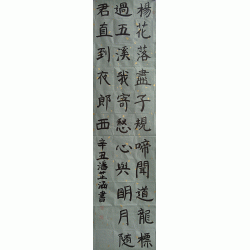 楊花落盡子規啼聞道龍標
過五溪我寄愁心與明月隨
君直到夜郎西辛丑潘芷涵書